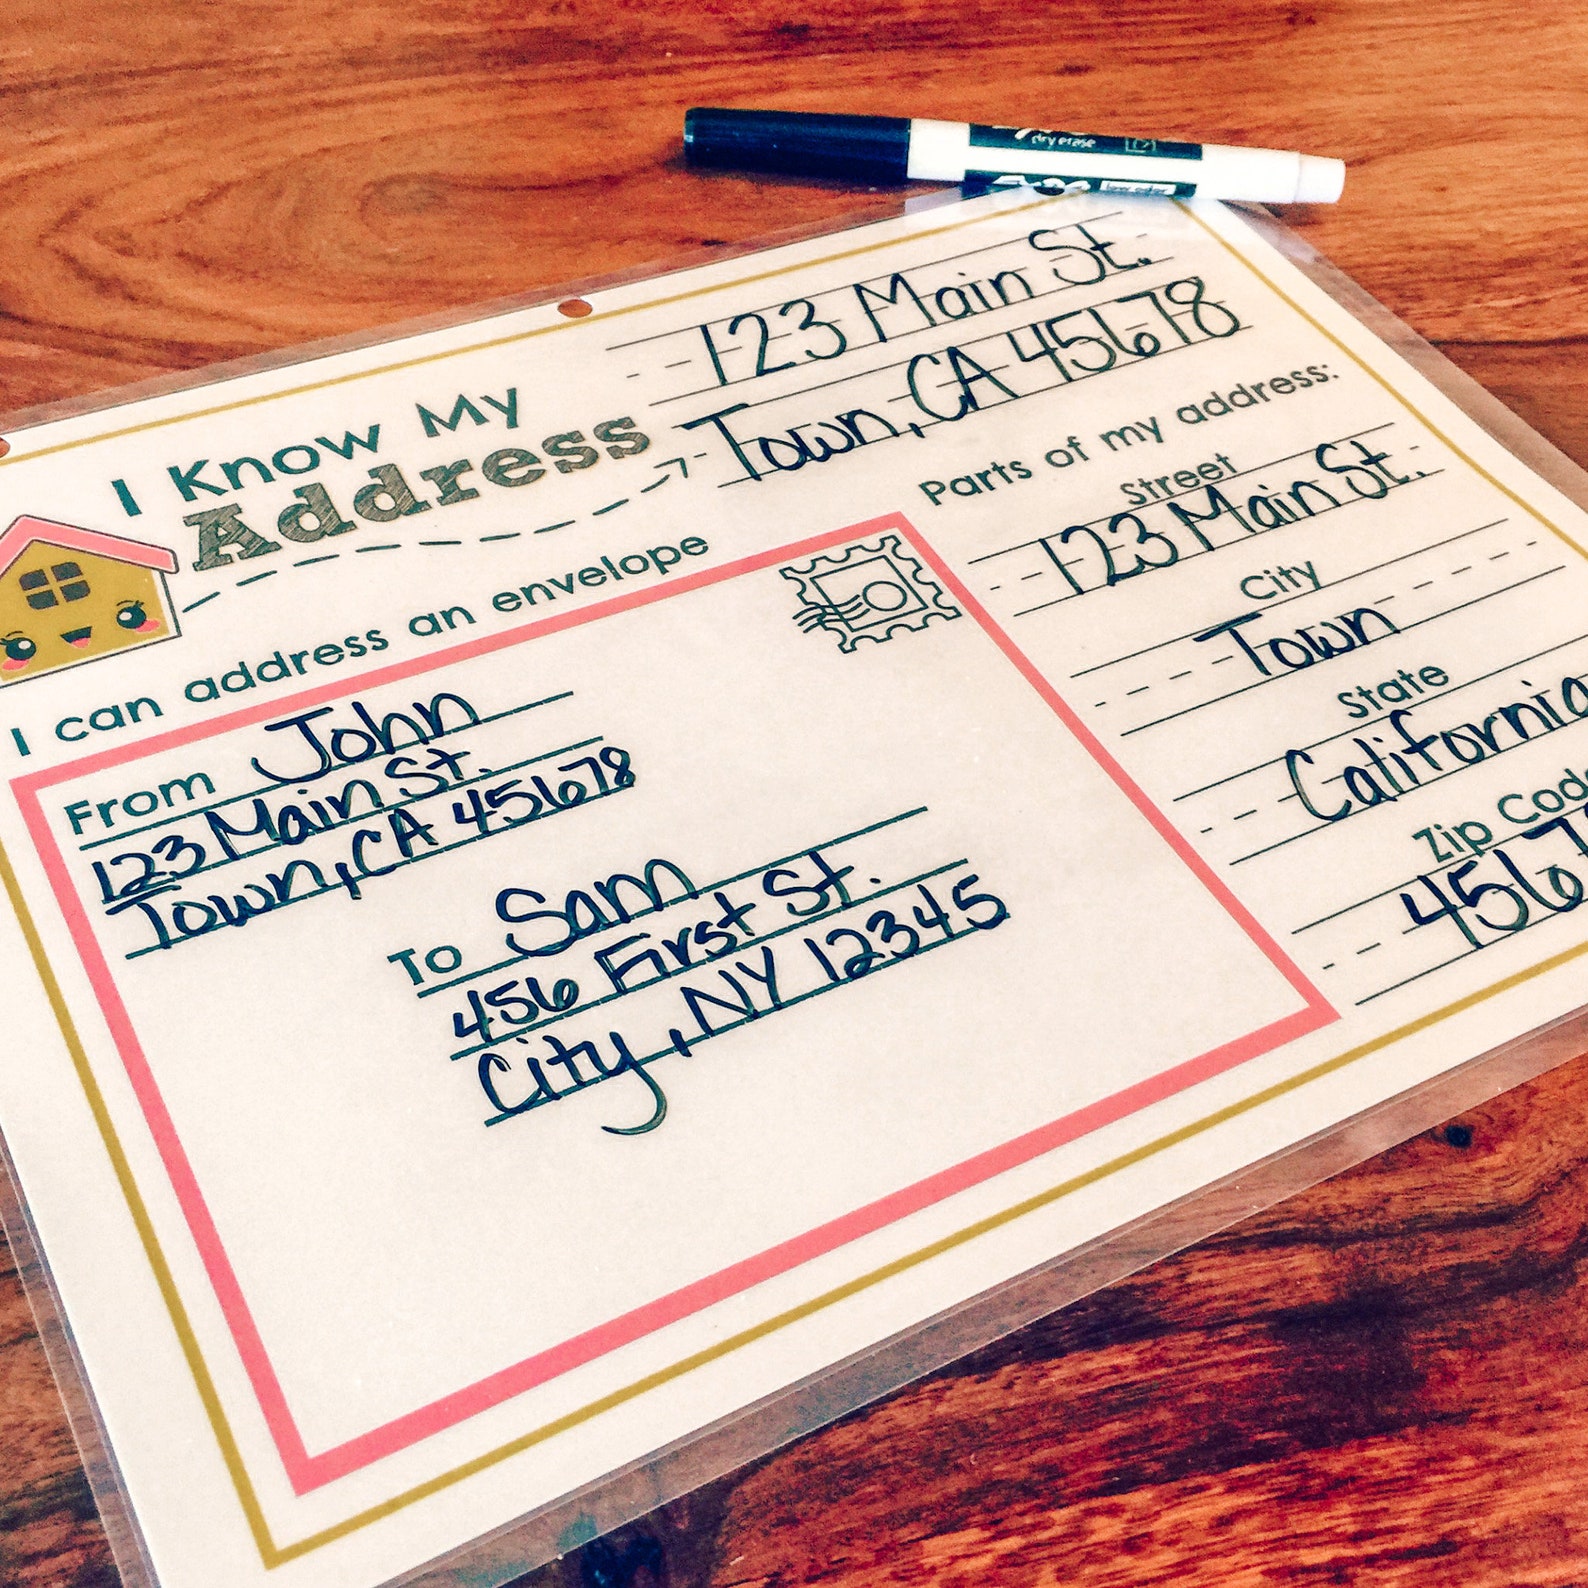 dry erase
low odor
123 Main St.
Town, CA 45678
I Know My
Address
I can address an envelope
From John
123 Main St.
Town, CA 45678
To Sam
456 First St.
City, NY 12345
Parts of my address:
Street
123 Main St.
City
Town
State
California
Zip Code
4567